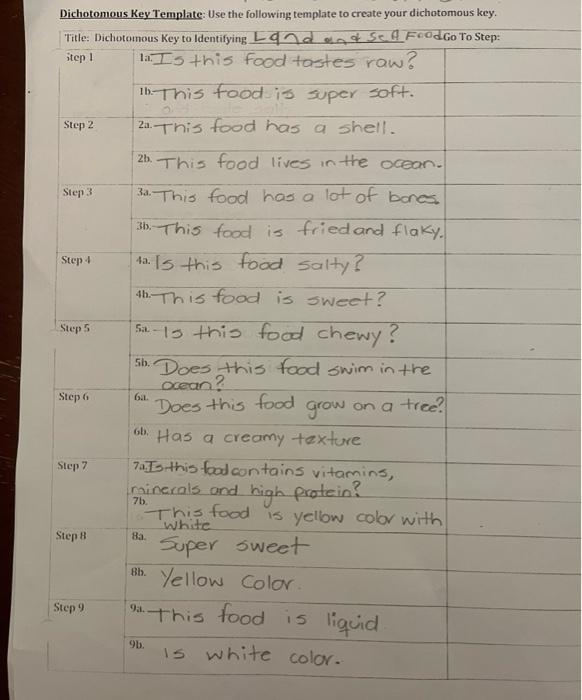 Dichotomous Key Template: Use the following template to create your dichotomous key.
Title: Dichotomous Key to Identifying Land and Sea Food Go To Step:
Step 1 1a. Is this food tastes raw?
1b. This food is super soft.
Step 2 2a. This food has a shell.
2b. This food lives in the ocean.
Step 3 3a. This food has a lot of bones
3b. This food is fried and flaky.
Step 4 4a. Is this food salty?
4b. This food is sweet?
Step 5 5a. Is this food chewy?
5b. Does this food swim in the
ocean?
Step 6 6a. Does this food grow on a tree?
6b. Has a creamy texture
Step 7 7a. Is this food contains vitamins,
minerals and high protein?
7b. This food is yellow color with
white
Step 8 8a. Super sweet
8b. Yellow Color.
Step 9 9a. This food is liquid
9b. is white color.